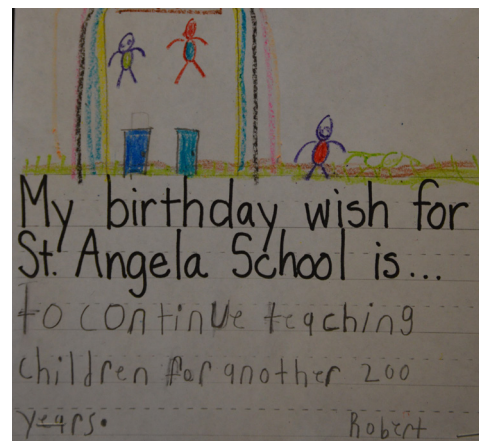 My birthday wish for
St. Angela School is...
to continue teaching
children for another 200
years.
Robert